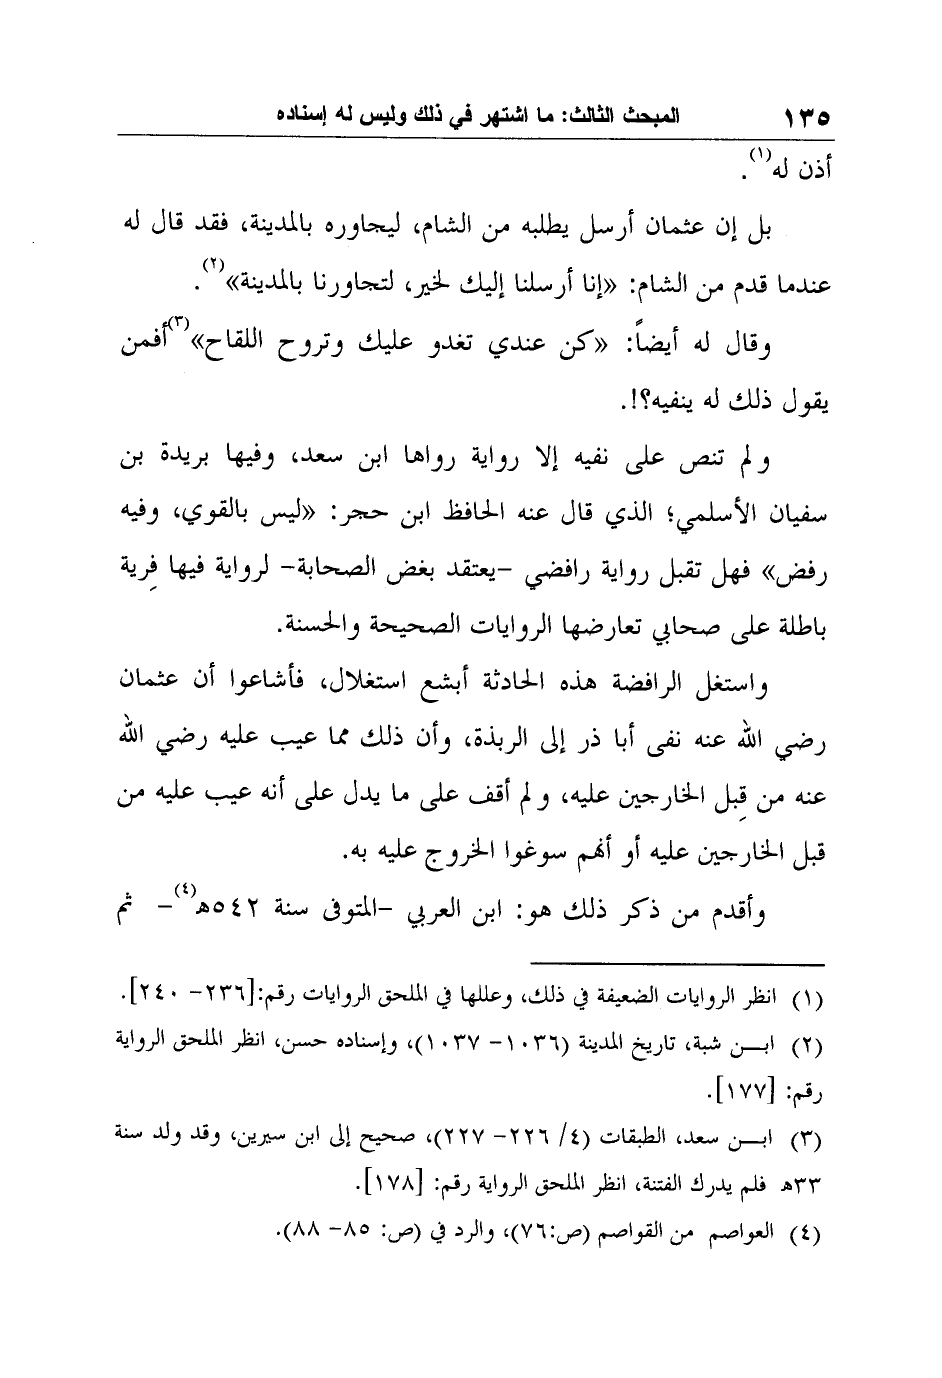 ١٣٥ المبحث الثالث: ما اشتهر في ذلك وليس له إسناده
أذن له(١).
بل إن عثمان أرسل يطلبه من الشام، ليجاوره بالمدينة، فقد قال له
عندما قدم من الشام: «إنا أرسلنا إليك لخير، لتجاورنا بالمدينة»(٢).
وقال له أيضاً: «كن عندي تغدو عليك وتروح اللقاح»(٣)أفمن
يقول ذلك له ينفيه؟!.
ولم تنص على نفيه إلا رواية رواها ابن سعد، وفيها بريدة بن
سفيان الأسلمي؛ الذي قال عنه الحافظ ابن حجر: «ليس بالقوي، وفيه
رفض» فهل تقبل رواية رافضي -يعتقد بغض الصحابة- لرواية فيها فِرية
باطلة على صحابي تعارضها الروايات الصحيحة والحسنة.
واستغل الرافضة هذه الحادثة أبشع استغلال، فأشاعوا أن عثمان
رضي الله عنه نفى أبا ذر إلى الربذة، وأن ذلك مما عيب عليه رضي الله
عنه من قِبل الخارجين عليه، ولم أقف على ما يدل على أنه عيب عليه من
قِبل الخارجين عليه أو أنهم سوغوا الخروج عليه به.
وأقدم من ذكر ذلك هو: ابن العربي -المتوفى سنة ٥٤٢هـ(٤)- ثم
(١) انظر الروايات الضعيفة في ذلك، وعللها في الملحق الروايات رقم:[٢٣٦- ٢٤٠].
(٢) ابــن شبة، تاريخ المدينة (١٠٣٦- ١٠٣٧)، وإسناده حسن، انظر الملحق الرواية
رقم: [١٧٧].
(٣) ابــن سعد، الطبقات (٤/ ٢٢٦- ٢٢٧)، صحيح إلى ابن سيرين، وقد ولد سنة
٣٣هـ فلم يدرك الفتنة، انظر الملحق الرواية رقم: [١٧٨].
(٤) العواصم من القواصم (ص:٧٦)، والرد في (ص: ٨٥- ٨٨).